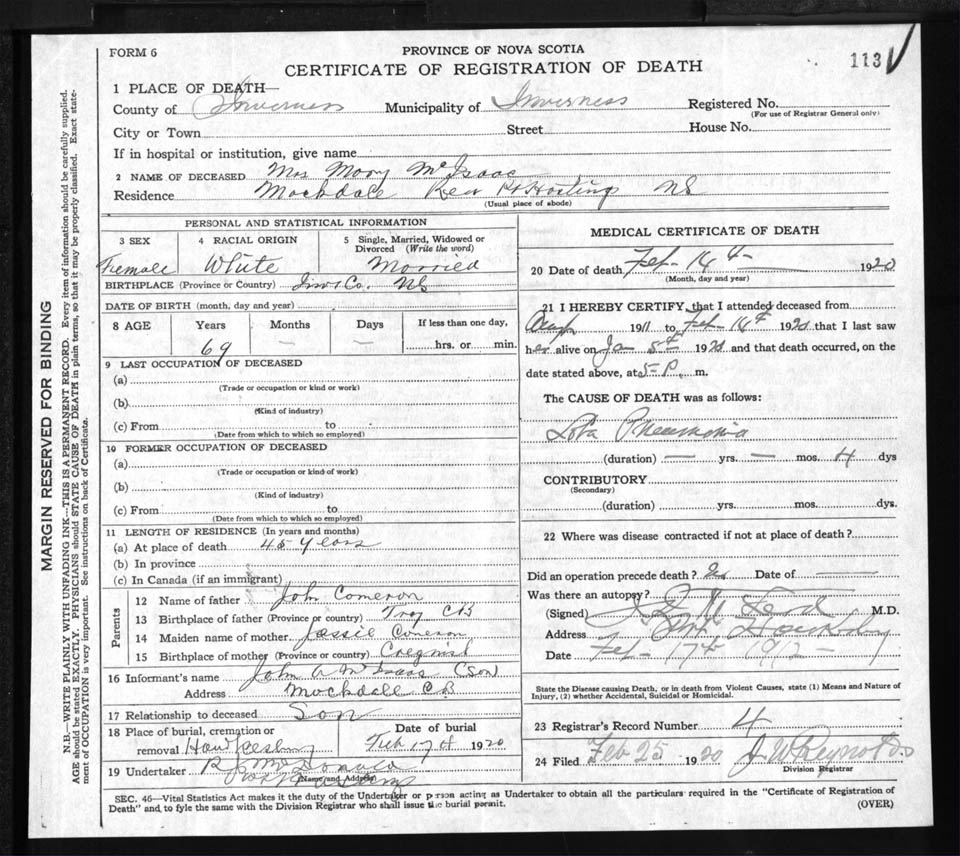 FORM 6
PROVINCE OF NOVA SCOTIA
113
CERTIFICATE OF REGISTRATION OF DEATH
1 PLACE OF DEATH—
County of Inverness Municipality of Inverness Registered No.
(For use of Registrar General only)
City or Town Street House No.
If in hospital or institution, give name
2 NAME OF DECEASED Mrs Mary McIsaac
Residence Rear Pt Hastings NS
(Usual place of abode)
MARGIN RESERVED FOR BINDING
N.B.—WRITE PLAINLY WITH UNFADING INK—THIS IS A PERMANENT RECORD. Every item of information should be carefully supplied.
AGE should be stated EXACTLY. PHYSICIANS should STATE CAUSE OF DEATH in plain terms, so that it may be properly classified. Exact state-
ment of OCCUPATION is very important. See instructions on back of Certificate.
PERSONAL AND STATISTICAL INFORMATION
3 SEX 4 RACIAL ORIGIN 5 Single, Married, Widowed or
Divorced (Write the word)
Female White Married
BIRTHPLACE (Province or Country) Inv. Co. NS
DATE OF BIRTH (month, day and year)
8 AGE Years Months Days If less than one day,
69 — — hrs. or min.
9 LAST OCCUPATION OF DECEASED
(a)
(Trade or occupation or kind or work)
(b)
(Kind of industry)
(c) From to
(Date from which to which so employed)
10 FORMER OCCUPATION OF DECEASED
(a)
(Trade or occupation or kind of work)
(b)
(Kind of industry)
(c) From to
(Date from which to which so employed)
11 LENGTH OF RESIDENCE (In years and months)
(a) At place of death 45 years
(b) In province
(c) In Canada (if an immigrant)
Parents
12 Name of father John Cameron
13 Birthplace of father (Province or country) Troy CB
14 Maiden name of mother Jessie Cameron
15 Birthplace of mother (Province or country) Creignish
16 Informant's name John A McIsaac (Son)
Address CB
17 Relationship to deceased Son
18 Place of burial, cremation or Date of burial
removal Hawkesbury Feb 17th 1920
19 Undertaker McDonald
(Name and Address)
MEDICAL CERTIFICATE OF DEATH
20 Date of death, Feb 14th 1920
(Month, day and year)
21 I HEREBY CERTIFY, that I attended deceased from
191 to Feb 14th 1920 that I last saw
her alive on 1920 and that death occurred, on the
date stated above, at 5 P. m.
The CAUSE OF DEATH was as follows:
Pneumonia
(duration) — yrs. — mos. 4 dys
CONTRIBUTORY
(Secondary)
(duration) yrs. mos. dys.
22 Where was disease contracted if not at place of death?
Did an operation precede death? Date of —
Was there an autopsy?
(Signed) M.D.
Address
Date Feb 17th
State the Disease causing Death, or in death from Violent Causes, state (1) Means and Nature of
Injury, (2) whether Accidental, Suicidal or Homicidal.
23 Registrar's Record Number 4
24 Filed Feb 25 1920 J W Reynolds
Division Registrar
SEC. 46—Vital Statistics Act makes it the duty of the Undertaker or person acting as Undertaker to obtain all the particulars required in the "Certificate of Registration of
Death" and, to fyle the same with the Division Registrar who shall issue the burial permit.
(OVER)